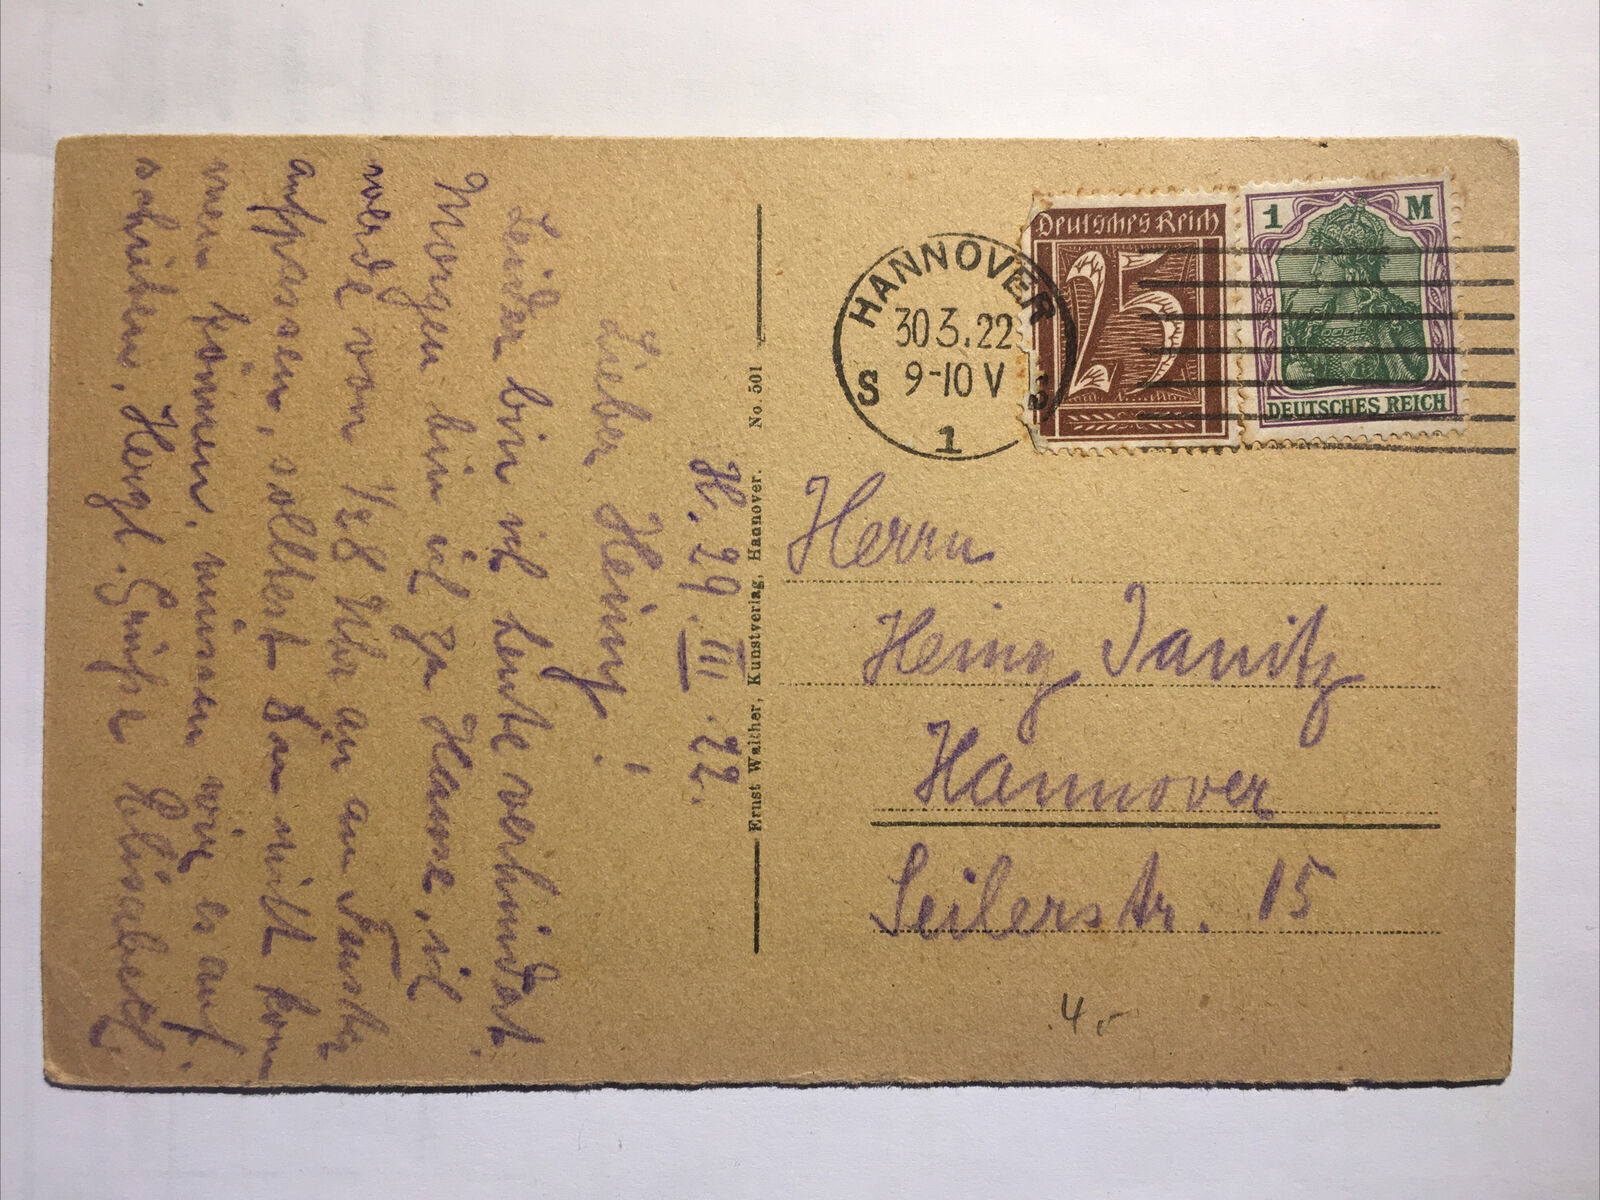 H. 29. III. 22.
Lieber Heinz!
Leider bin ich heute verhindert.
Morgen bin ich zu Hause, ich
werde von 1/28 Uhr an am Fenster
aufpassen, solltest Du nicht kom-
men können, müssen wir es auf-
schieben. Herzl. Grüße Elisabeth.
Ernst Walther, Kunstverlag, Hannover. No. 501
HANNOVER
30.3.22
9-10 V
S S
1
Deutsches Reich
25
1 M
DEUTSCHES REICH
Herrn
Heinz Janitz
Hannover
Seilerstr. 15
4,-